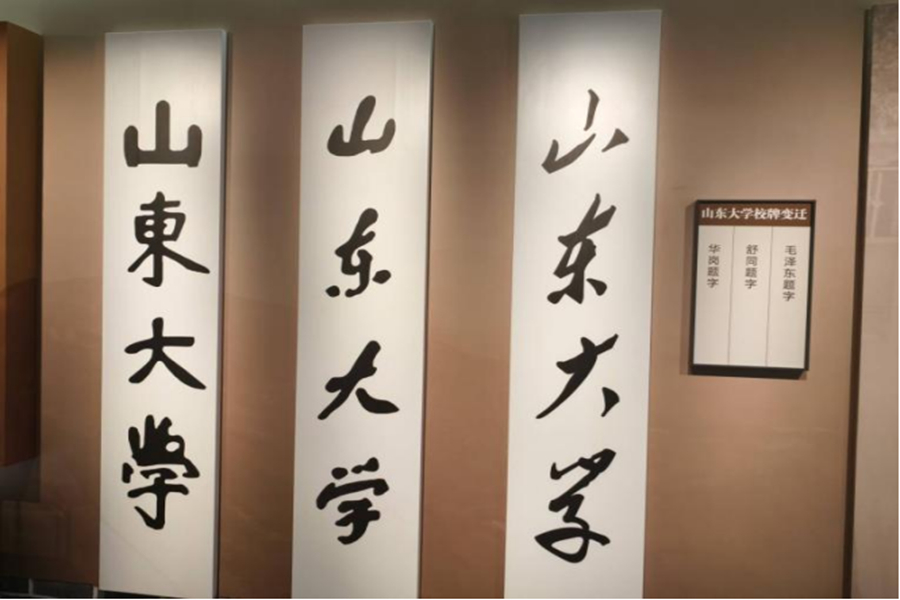 山東大學
山东大学
山东大学
山东大学校牌变迁
华岗题字
舒同题字
毛泽东题字